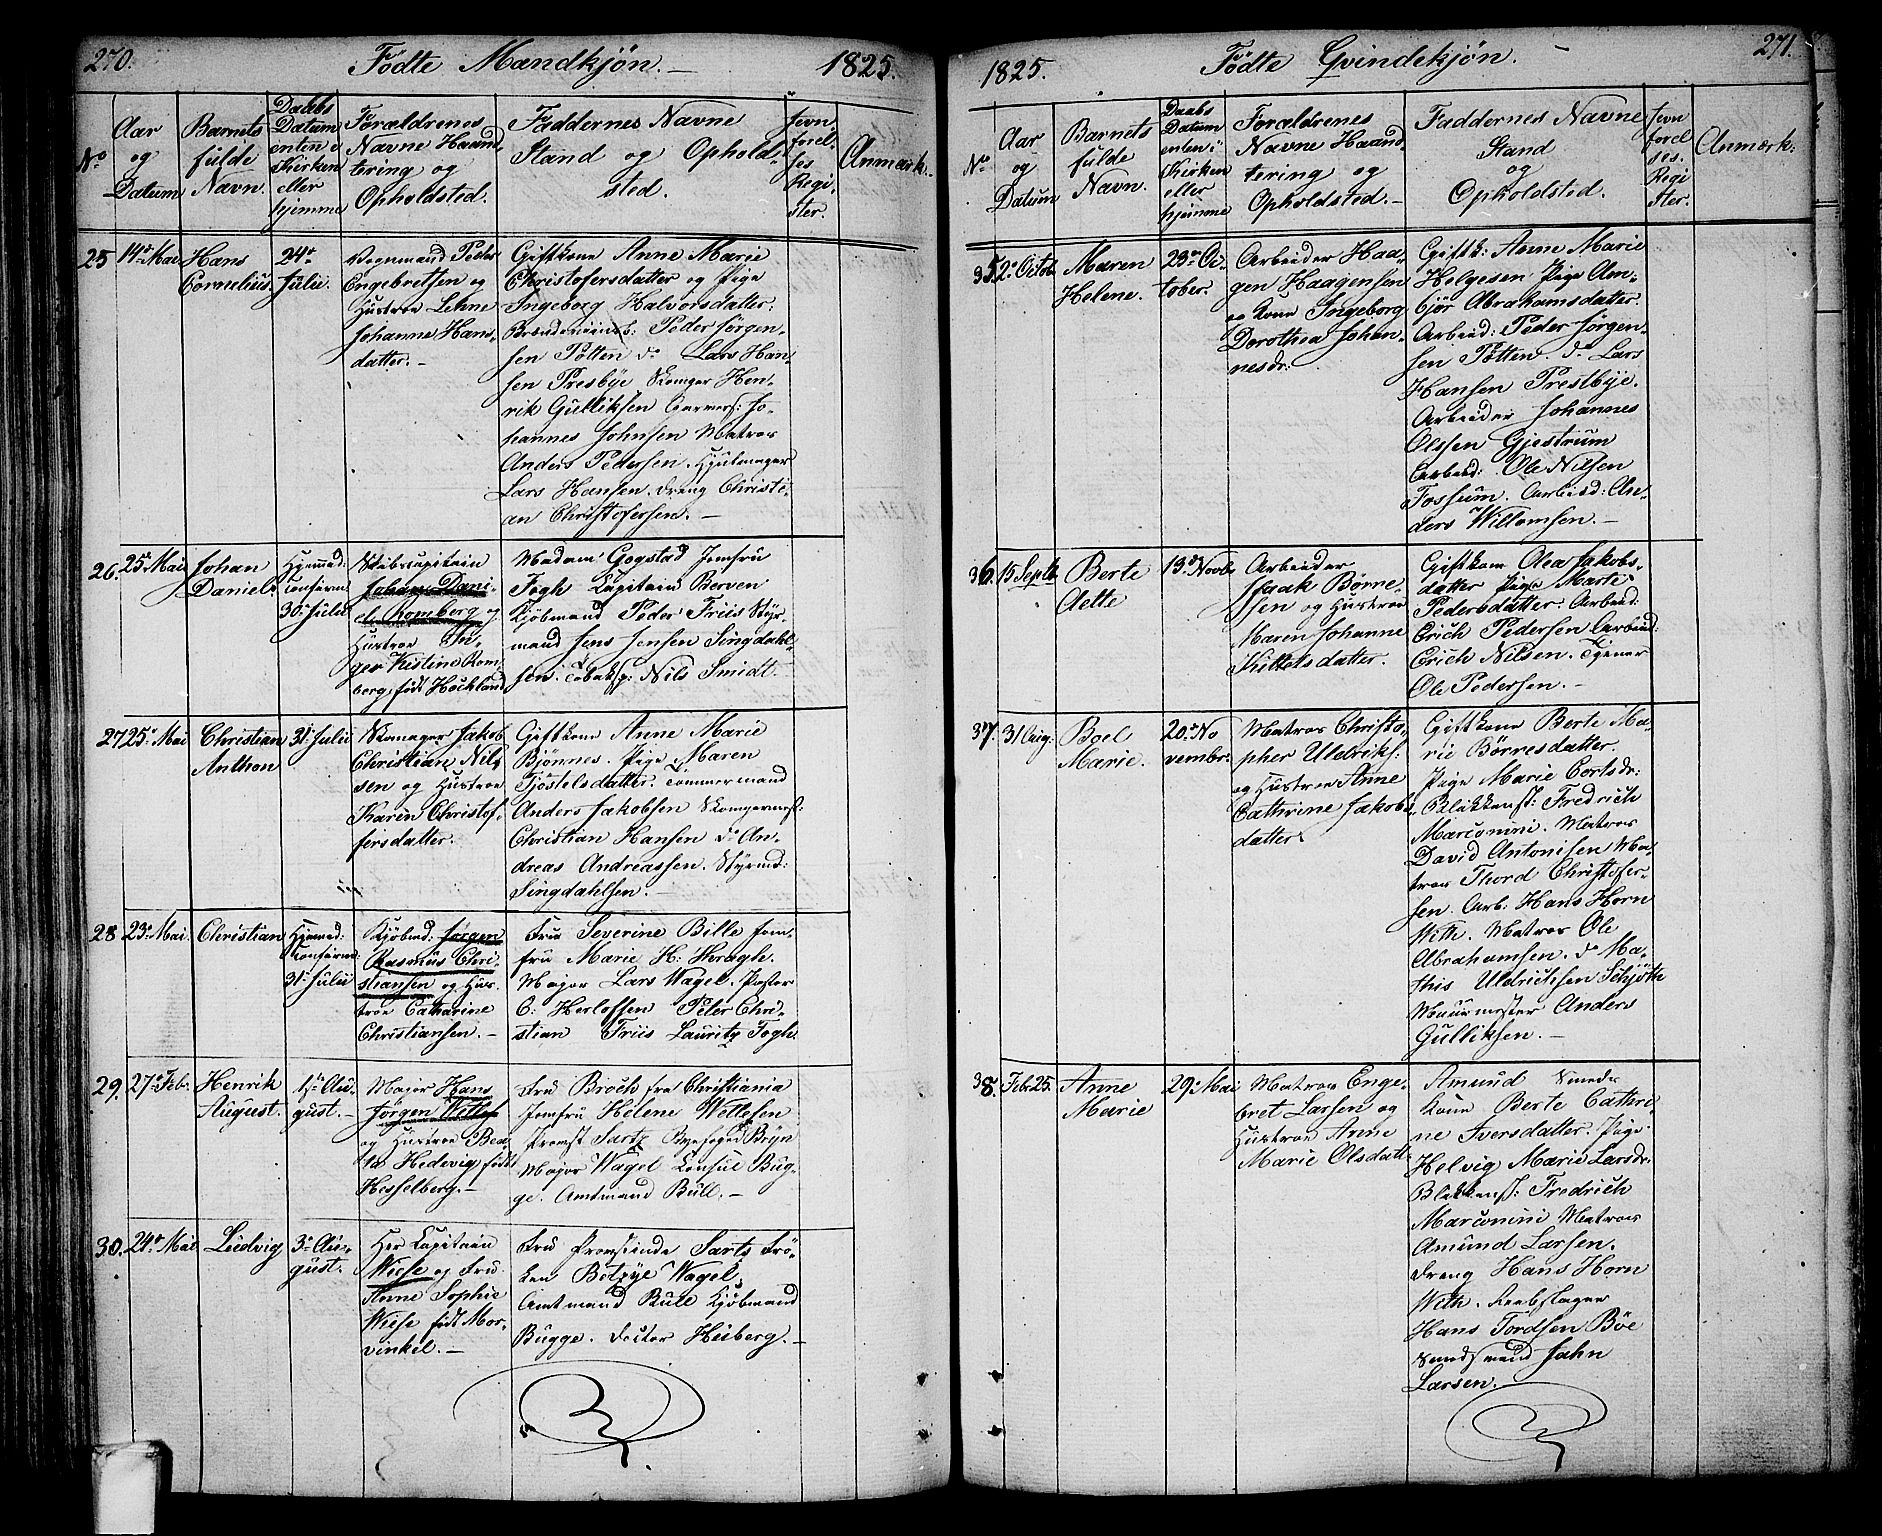 270.
Födte Mandkjön. 1825.
No
Aar og Datum
Barnets fulde Navn.
Daabs Datum enten i Kirken eller hjemme
Forældrenes Navne Haandtering og Opholdsted.
Faddernes Navne Stand og Opholdsted.
Jevnförelses Register.
Anmærk.
25 14de Mai
Hans
Cornelius.
24de
Julii.
Vognmand Peder
Engebretsen og
Hustroe Lehne
Johanne Hans-
datter.
Giftkone Anne Marie
Christofersdatter og Pige
Ingeborg Halvorsdatter.
Peder Jörgen-
sen Potten do Lars Han-
sen Presbye Skomager Hen-
rik Gulliksen Jo-
hannes Johnsen Matros
Anders Pedersen. Hjulmager
Lars Hansen. Dreng Christi-
an Christofersen.
26. 25de Mai
Johan
Daniel.
Hjemmed:
Confirm:
30te Julii
Stabscapitain
Johan Dani-
el Romberg og
Hustroe In-
ger Kistine Rom-
berg, födt Hochland
Madam Gogstad Jomfru
Fogh Capitain Berven
Kjöbmand Peder Friis Styr-
mand Jens Jensen Singdahl-
sen. Tobaksp: Nils Smidt.
27 25de Mai
Christian
Anthon
31te Julii
Skomager Jakob
Christian Nil-
sen og Hustroe
Karen Christof-
fersdatter.
Giftkone Anne Marie
Bjönnes. Pige Maren
Tjöstelsdatter. Tömmermand
Anders Jakobsen Skomagermest:
Christian Hansen do An-
dreas Andreassen. Styrmd:
Singdahlsen.
28 23de Mai.
Christian
Hjemmed:
Confirm:
31te Julii
Kjöbmd: Jörgen
Rasmus Chri-
stiansen og Hus-
troe Catharine
Christiansen.
Fru Severine Bille Jom-
fru Marie H: Kragh.
Major Lars Wagel. Pastor
C: Herlofsen Peter Chri-
stian Friis Lauritz Fogh.
29. 27de Febr.
Henrik
August.
1ste Au-
gust.
Major Hans
Jörgen Wetles-
og Hustroe Bea-
ta Hedevig födt
Hesselberg.
Fru Broch fra Christiania
Jomfru Helene Wetlesen
Provst Sartz Byefoged Bryn
Major Wagel Consul Bug-
ge. Amtmand Bull.
30. 24de Mai
Ludvig
3de Au-
gust.
Her Capitain
Wiese og Fru
Anne Sophie
Wiese födt Mor-
vinkel.
Fru Provstinde Sarts Frö-
ken Betzye Wagel.
Amtmand Bull Kjöbmand
Bugge. Doctor Heiberg.
1825. Födte Qvindekjön. 271.
No
Aar og Datum
Barnets fulde Navn.
Daabs Datum enten i Kirken eller hjemme
Forældrenes Navne Haandtering og Opholdsted.
Faddernes Navne Stand og Opholdsted.
Jevnforelses. Register.
Anmærk:
35. 2de Octob.
Maren
Helene.
23de Oc-
tober.
Arbeider Haa-
gen Haagensen
og Kone Ingeborg
Dorothea Johan-
nesdr:
Giftk: Anne Marie
Helgesen Pige Am-
björ Abrahamsdatter.
Arbeid: Peder Jörgen-
sen Potten. do Lars
Hansen Prestbye.
Arbeider Johannes
Olssen Gjestrum
Arbeid: Ole Nilsen
Fossum. Arbeid: An-
ders Willomsen.
36. 15 Septb.
Berte
Aette
13de Novbr
Arbeider
Isaak Börne-
sen og Hustroe
Maren Johanne
Kittelsdatter.
Giftkone Olea Jakobs-
datter Pige Marte
Pedersdatter. Arbeid:
Erich Pedersen Arbeid:
Erich Nilsen. Tjener
Ole Pedersen.
37. 31 Aug:
Boel
Marie.
20de No
vembr.
Matros Christo-
pher Uldriks:
og Hustroe Anne
Cathrine Jakobs-
datter.
Giftkone Berte Ma-
rie Börresdatter.
Pige Marie Cortsdr:
Blikkenst: Fredrich
Marconini. Matros
David Antonisen Ma-
tros Thord Christofer-
sen. Arb: Hans Horn
With. Matros Ole
Abrahamsen. do Ma-
this Uldrichsen Schjöth
Muurmester Anders
Gulliksen.
38. Febr 25.
Anne
Marie
29de Mai
Matros Enge-
bret Larsen og
Hustroe Anne
Marie Olsdatt
Amund Smeds
Kone Berte Cathri-
ne Iversdatter. Pige
Helvig Marie Larsdr:
Blikkenst: Fredrich
Marconini Matros
Amund Larsen.
Dreng Hans Horn
With. Reebslager
Hans Tordsen Böe
Smedsvend Jahn
Larsen.